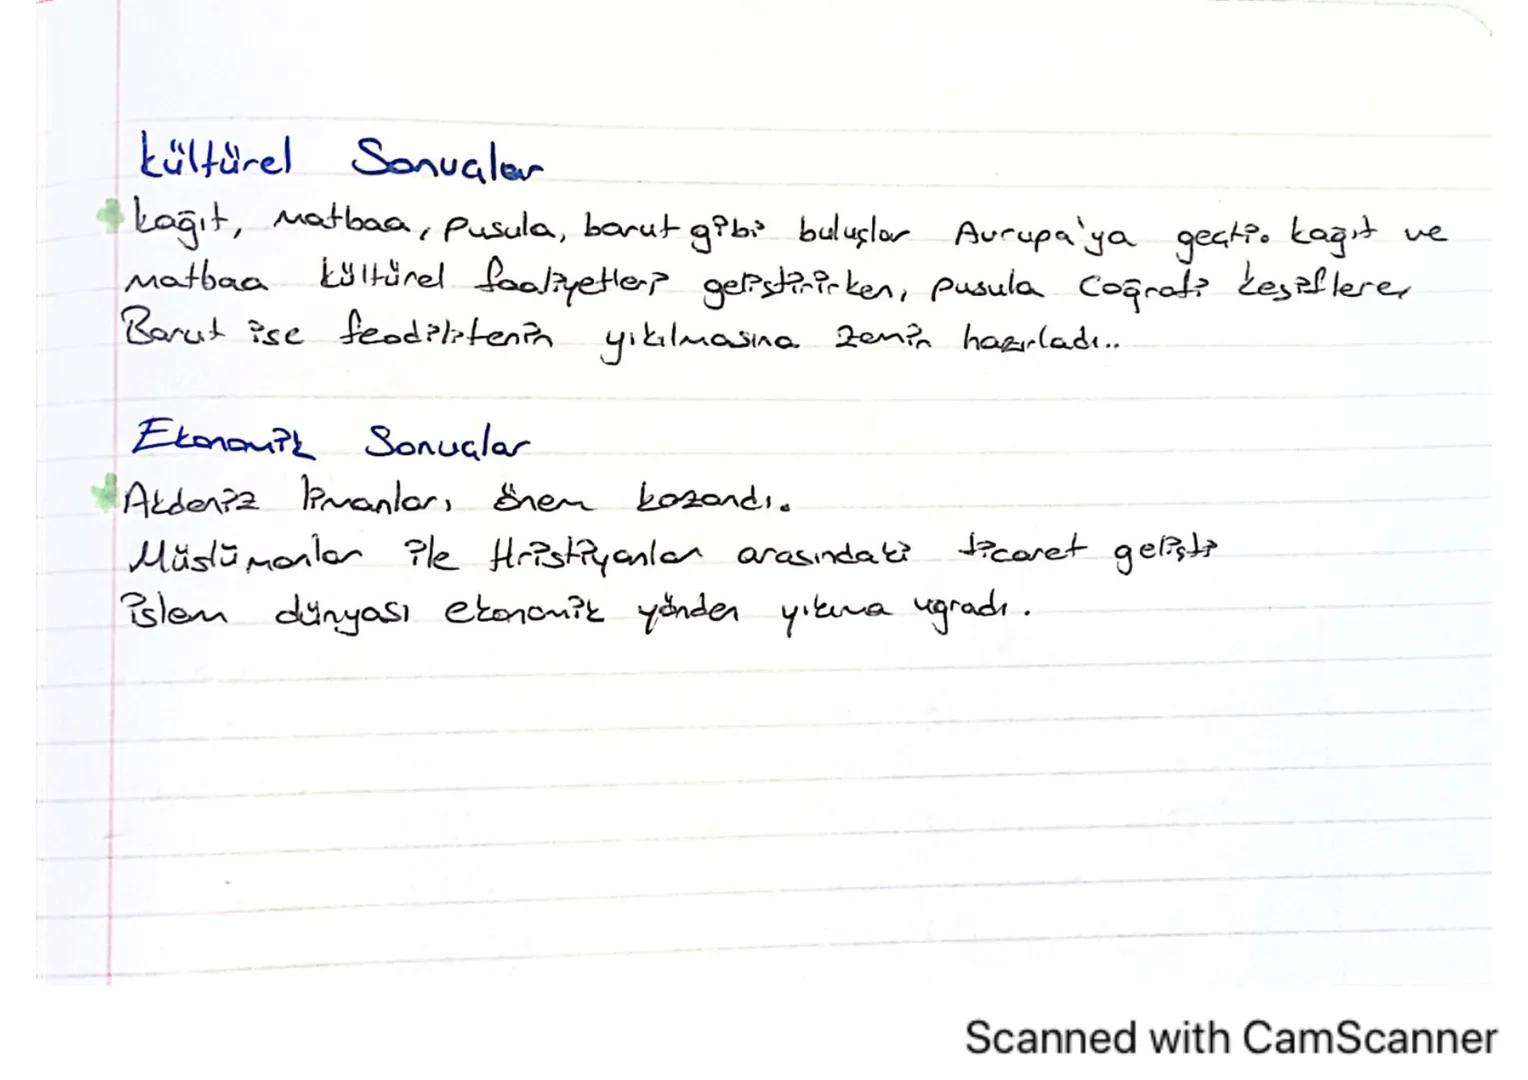 Kültürel Sonuçlar
Kağıt, Matbaa, Pusula, barut gibi buluşlar Avrupa'ya geçti. Kağıt ve
Matbaa kültürel faaliyetleri geliştirirken, pusula Coğrafi keşiflere,
Barut ise feodilitenin yıkılmasına zemin hazırladı..
Ekonomik Sonuçlar
Akdeniz limanları önem kazandı.
Müslümanlar ile Hristiyanlar arasındaki ticaret gelişti
islam dünyası ekonomik yönden yıkıma uğradı.
Scanned with CamScanner